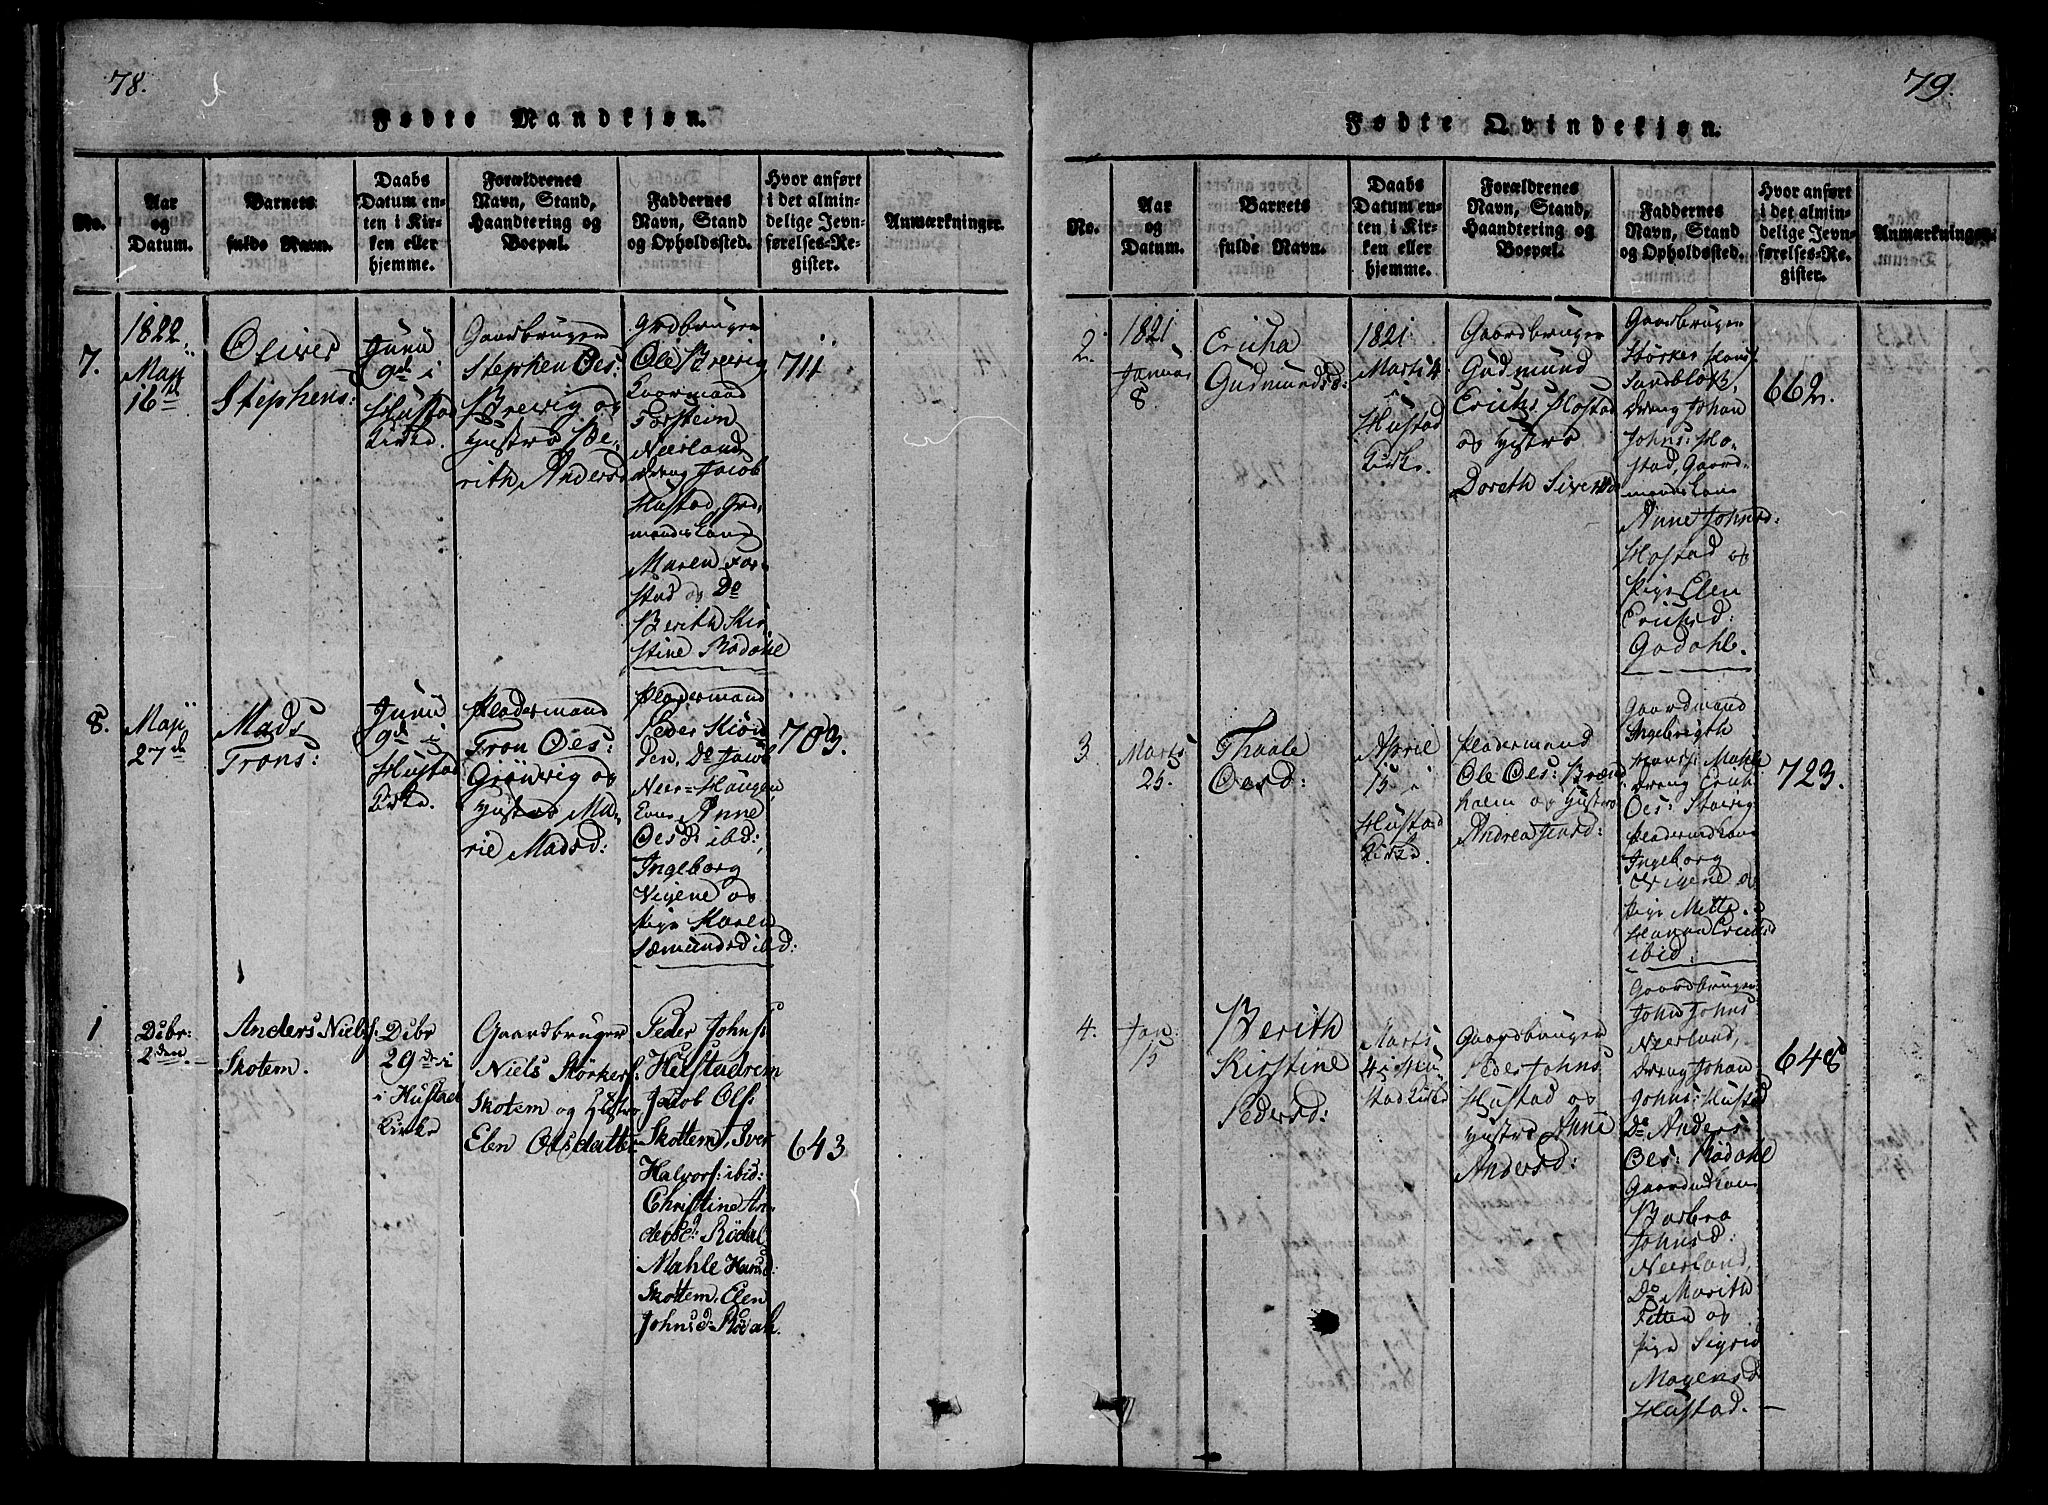 78.
Fødte Mandkjøn.
No.
Aar
og
Datum.
Barnets
fulde Navn.
Daabs
Datum en-
ten i Kir-
ken eller
hjemme.
Forældrenes
Navn, Stand,
Haandtering og
Boepæl.
Faddernes
Navn, Stand
og Opholdssted.
Hvor anført
i det almin-
delige Jevn-
førelses-Re-
gister.
Anmærkninger.
7.
1822.
Maji
16de
Oliver
Stephens:
Junii
9de i
Hustad
Kirke.
Gaardbruger
Stephen Oes:
Brevig og
Hustro Be-
rith Andersd
Grdbruger
Ole Brevig
Torstein
Neerland
Dreng Jacob
Hustad, Grd-
mandskone
Maren Tor-
stad og Do
Berith Kir-
stine Rødahl
711
8.
Maji
27de
Mads
Trons:
Junii
9de i
Hustad
Kirke.
Pladsmand
Tron Oes:
Grönvig og
Hustro Ma-
rie Madsd:
Pladsmand
Peder Skion
den, Do Jacob
Neer-Haugen
Enke Anne
Oesd: ibid:,
Ingeborg
Vigene og
Pige Karen
Sæmundsd ibd:
703.
1
Dcbr:
2den
Anders Niels:
Skotem.
Dcbr
29de i
i Hustad
Kirke
Gaardbruger
Niels Störkers:
Skotem og Hustro
Elen Olsdatter
Peder Johns:
Hustadrem
Jacob Ols:
Skottem, Iver
Halvors: ibid:
Christine An-
dersd: Rödal
Mahle Hansd:
Skottem. Elen
Johnsd: Rödal.
643
79.
Fødte Qvindekjøn.
No.
Aar
og
Datum.
Barnets
fulde Navn.
Daabs
Datum en-
ten i Kir-
ken eller
hjemme.
Forældrenes
Navn, Stand,
Haandtering og
Boepæl.
Faddernes
Navn, Stand
og Opholdssted.
Hvor anført
i det almin-
delige Jevn-
førelses-Re-
gister.
Anmærkninger.
2.
1821
Januar
8
Ericha
Gudmundsd:
1821
Marti 4
i
Hustad
Kirke.
Gaardbruger
Gudmund
Erichs: Hostad
og Hustro
Doreth Siversd
Gaardbruger
Störker Hans:
Sandblost,
Dreng Johan
Johns: Ho-
stad, Gaard-
mandskone
Anne Johnsd:
Hostad og
Pige Elen
Ericksd:
Gødahl.
662.
3
Marts
25.
Thaale
Oesd:
April
15 i
Hustad
Kirke.
Pladsmand
Ole Oes: Brænd-
holm og Hustro
Andrea Jensd:
Gaardmand
Ingebrigth
Hans: Mahle
Dreng Erich
Oes: Stavig
Pladsmdkone
Ingeborg
Vigene og
Pige Mette
Hanna Ericksd
ibid:
723.
4.
Jan:
15
Berith
Kirstine
Pedersd:
Marts
4 i Hu-
stad Kirke
Gaardbruger
Peder Johns
Hustad og
Hustro Anne
Andersd:
Gaardbruger
John Johns
Neerland,
Dreng Johan
Johns: Hustad
Do Anders
Oes: Rödahl
Gaardmdkone
Barbro
Johnsd:
Neerland,
Do Marith
Fetten og
Pige Sigrid
Mogensd
Hustad.
648